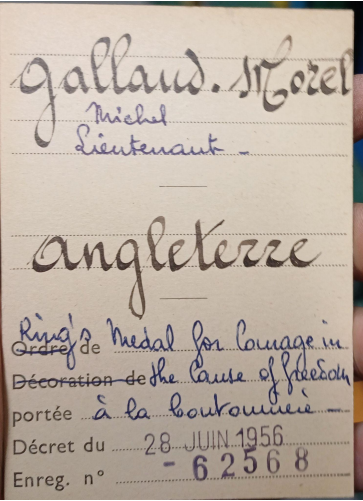 Galland. Morel
Michel
Lieutenant -
Angleterre
King's Medal for Courage in
Ordre de
Décoration de the Cause of freedom
portée à la boutonnière -
Décret du 28 JUIN 1956
Enreg. n° - 62568